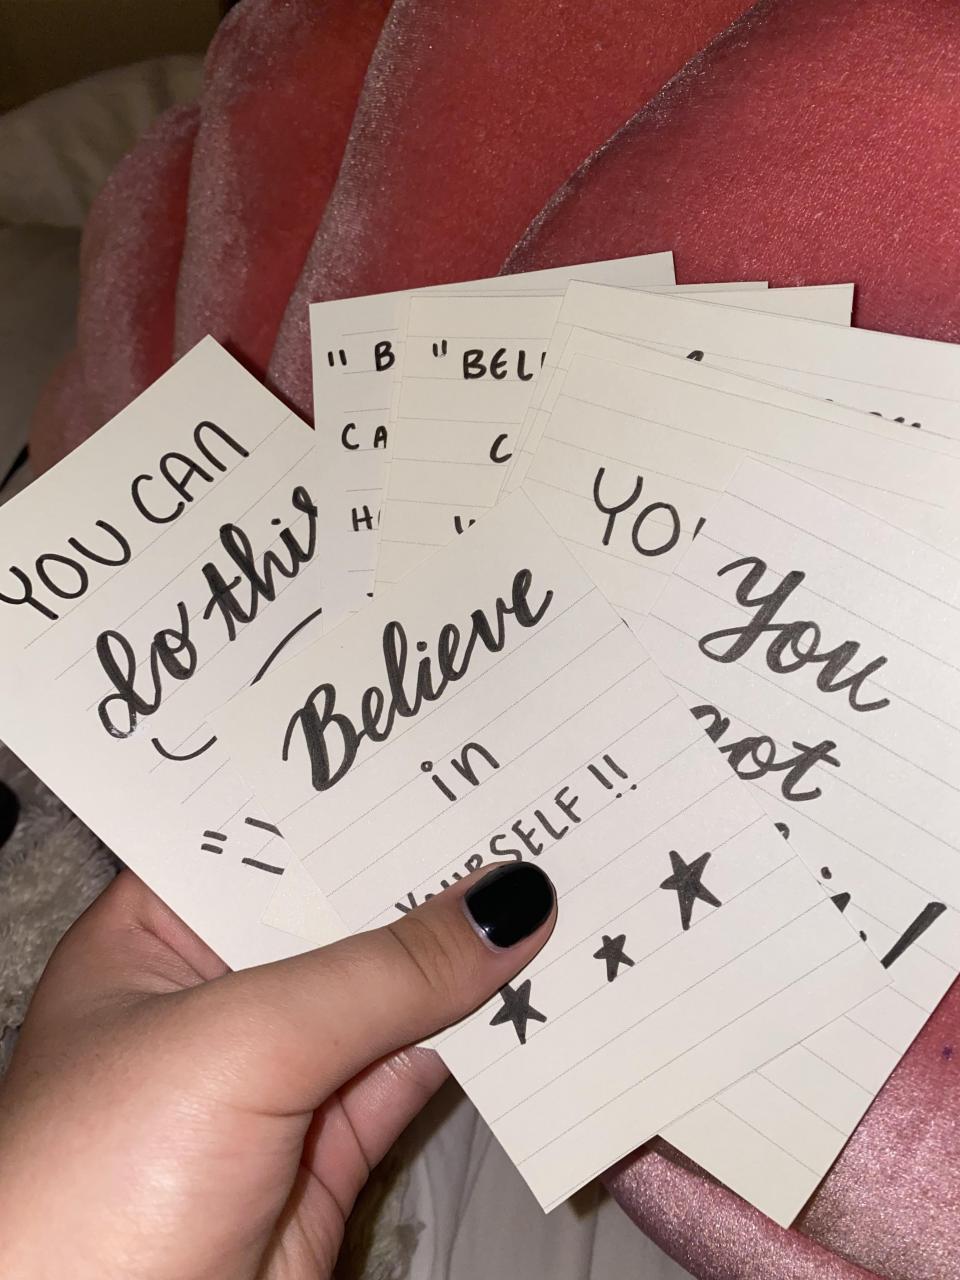 YOU CAN
do this
" B
CA
H
" BEL
C
"
Believe
in
YOURSELF !!
YO
You
got